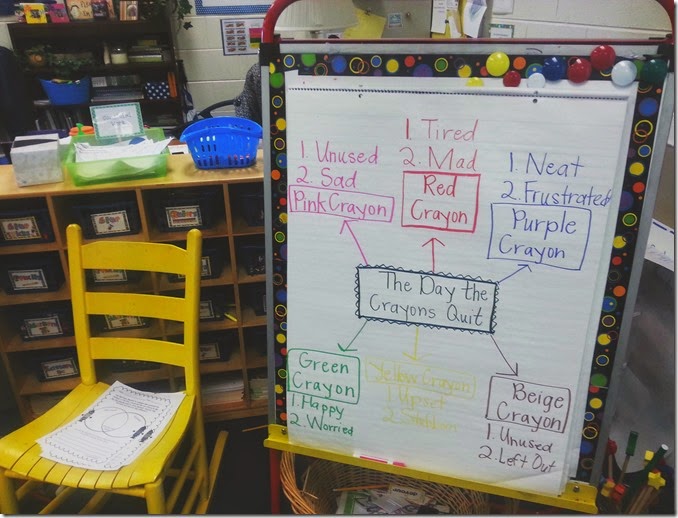 1. Tired
2. Mad
Red
Crayon
1. Unused
2. Sad
Pink Crayon
1. Neat
2. Frustrated
Purple
Crayon
The Day the
Crayons Quit
Green
Crayon
1. Happy
2. Worried
Yellow Crayon
1. Upset
2.
Beige
Crayon
1. Unused
2. Left Out